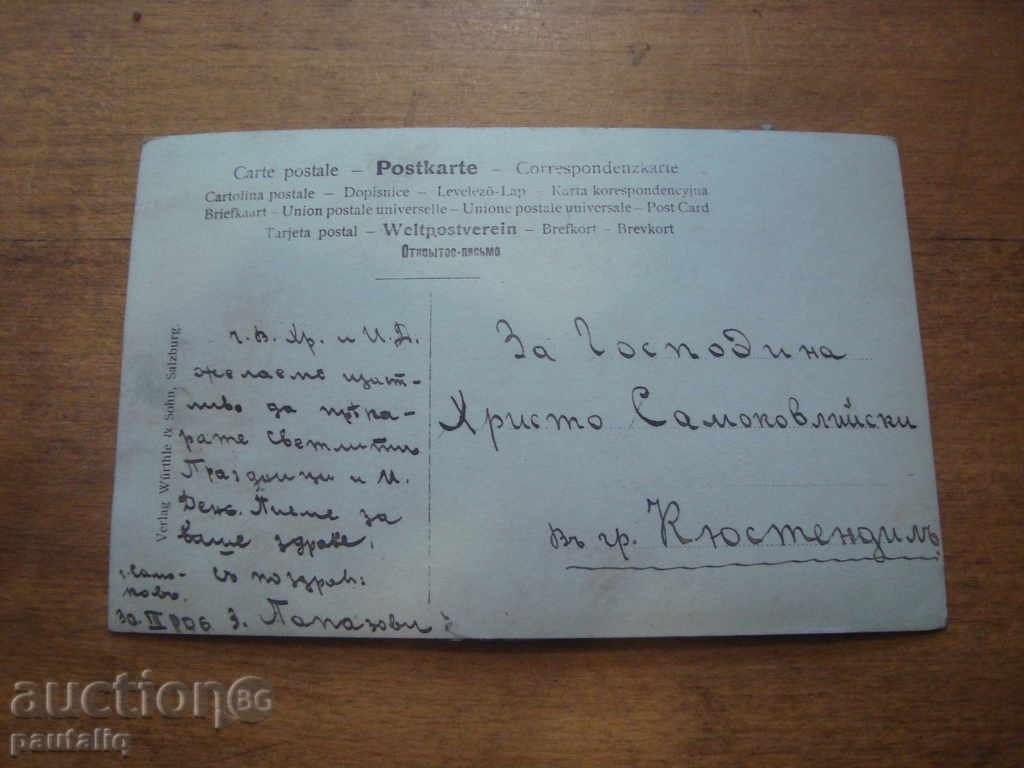 Carte postale – Postkarte – Correspondenzkarte
Cartolina postale – Dopisnice – Levelező-Lap – Karta korespondencyjna
Briefkaart – Union postale universelle – Unione postale universale – Post Card
Tarjeta postal – Weltpostverein – Brefkort – Brevkort
Открытое-письмо
Verlag Würthle & Sohn, Salzburg.
ч. В. Хр. и И. Д.
желаеме щаст-
ливо да прѣка-
рате светлитѣ
Праздници и И.
День. Пиеме за
ваше здраве.
Съ поздрав:
г. Само-
ковъ.
30. III 906 З. Папазови
За Господина
Христо Самоковлийски
Въ гр. Кюстендилъ
auctionBG
pautaliq